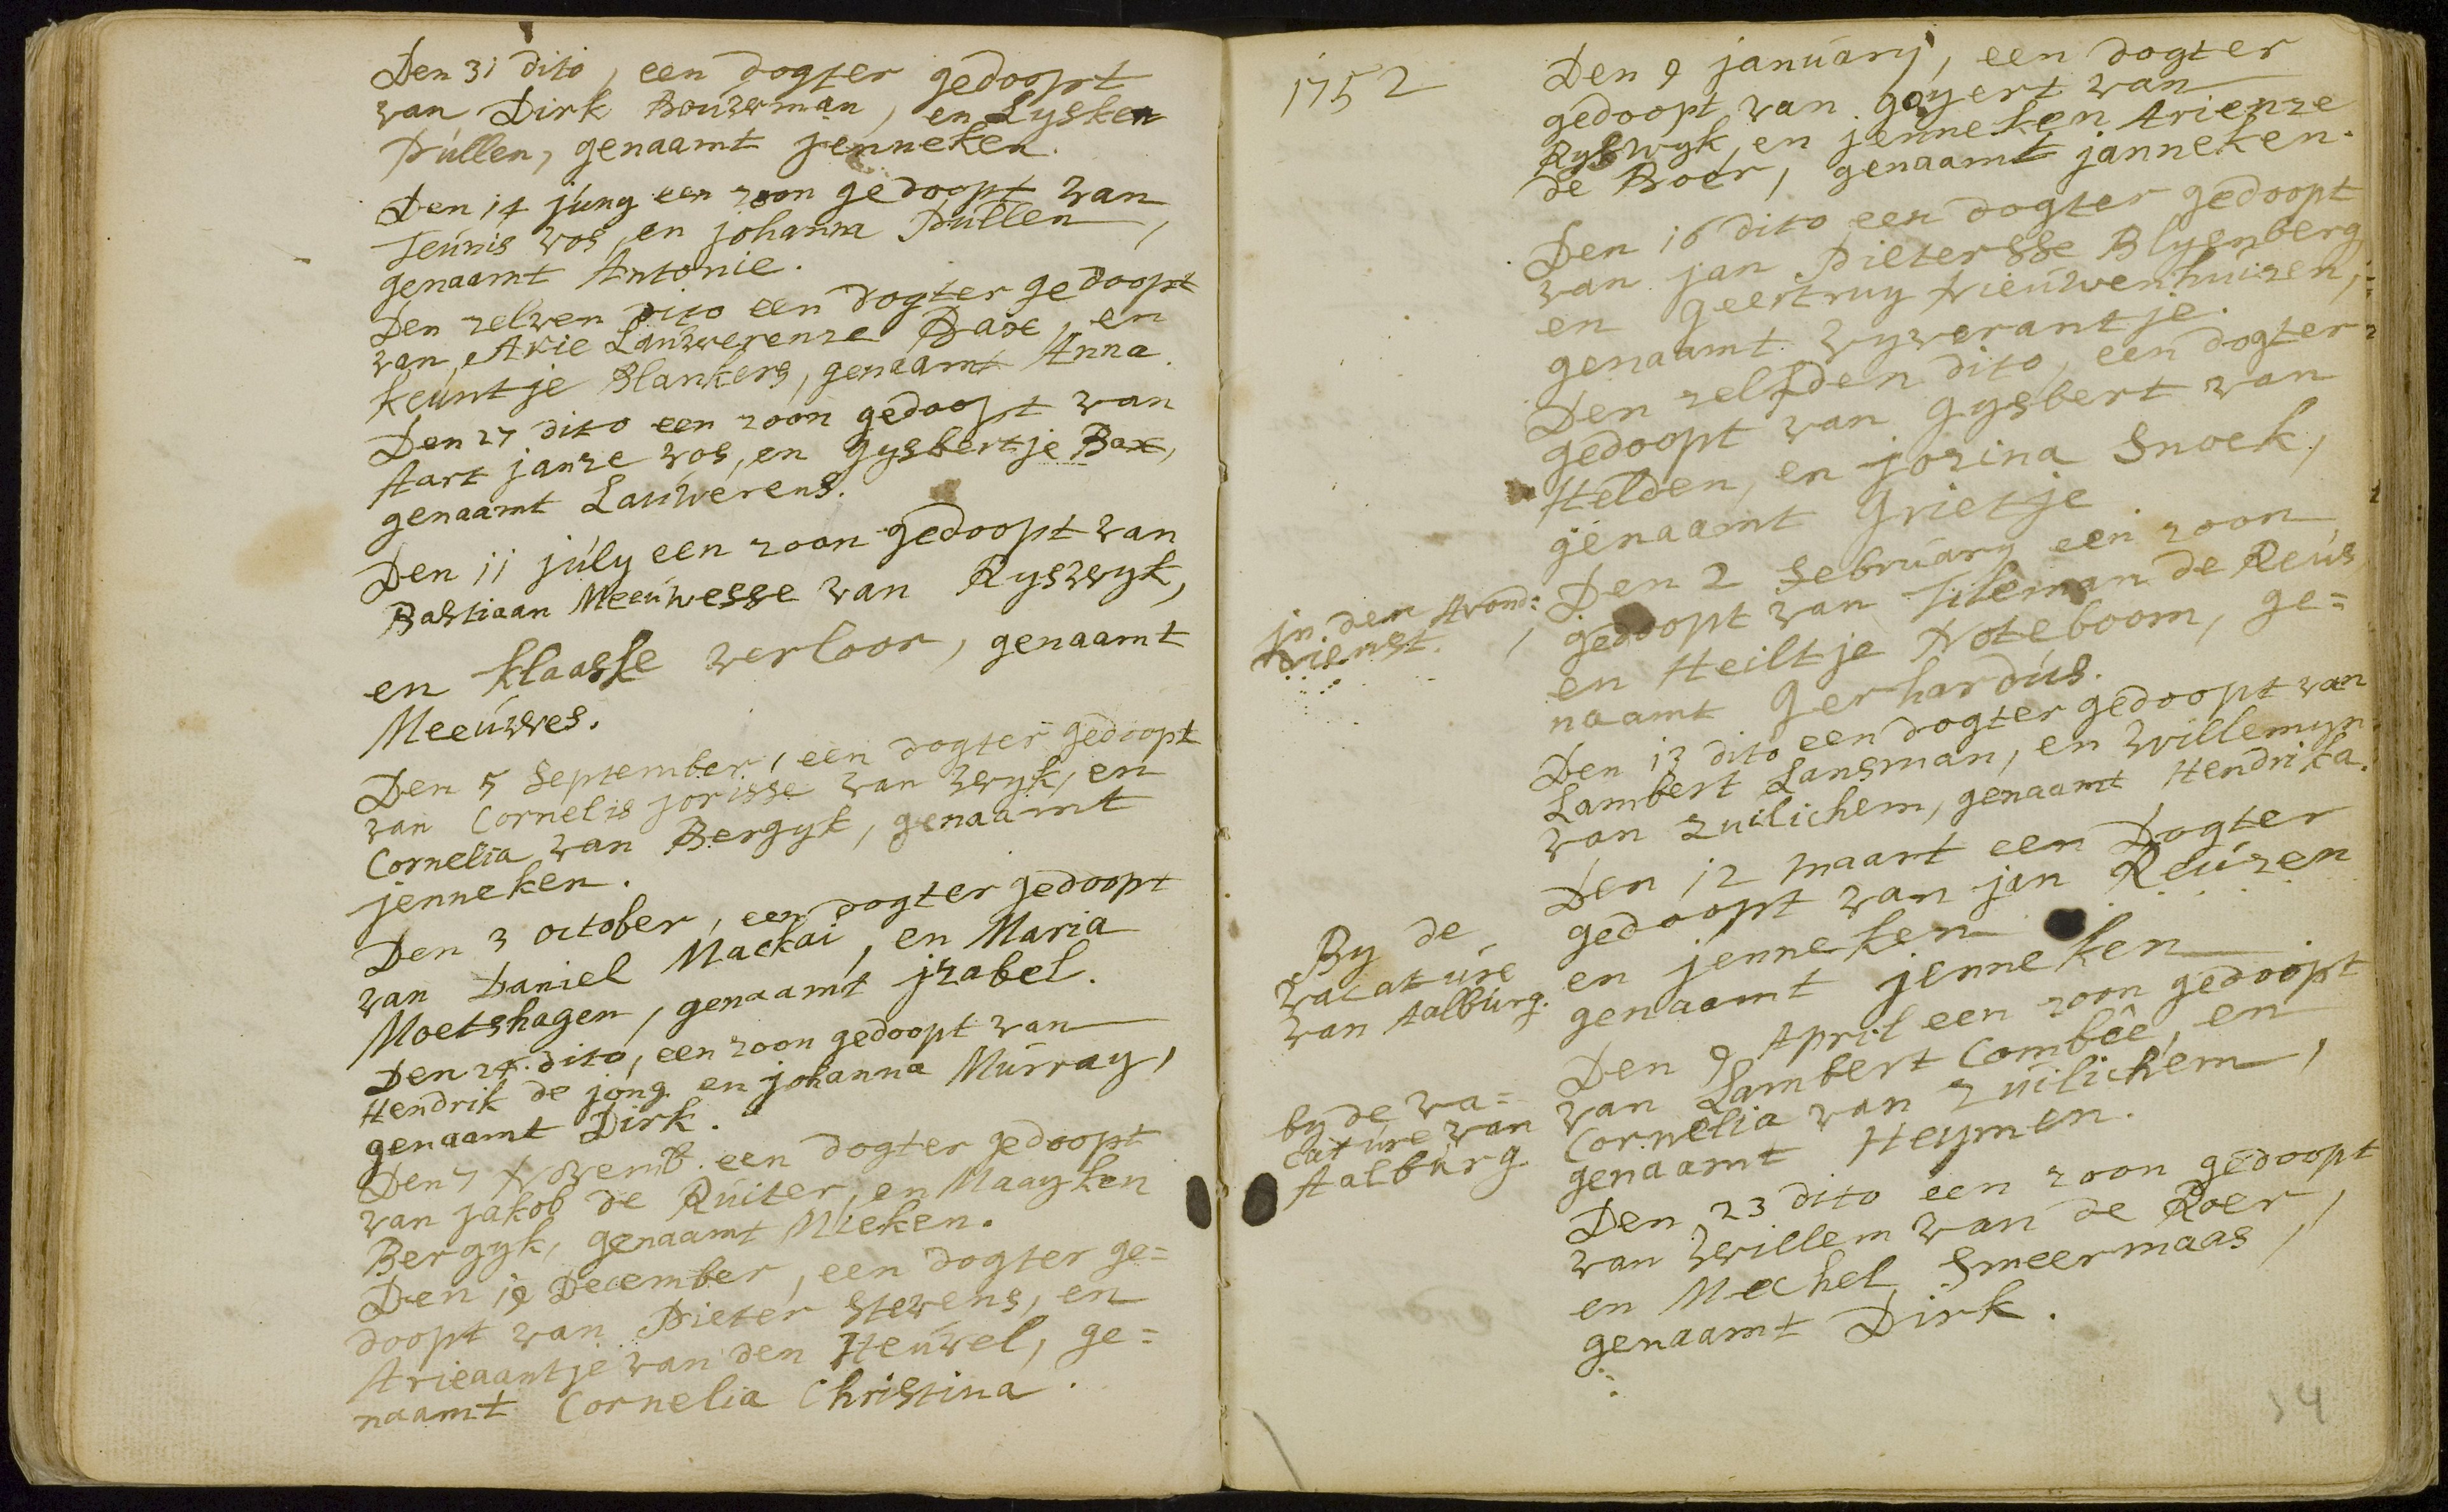 Den 31 dito, een dogter gedoopt
van Dirk Bouwman, en Lysken
Pullen, genaamt Jenneken.
Den 14 juny een zoon gedoopt van
Teunis vos, en johanna Pullen,
genaamt Antonie.
Den zelven dito een dogter gedoopt
van Arie Lauwerense Bax, en
Keuntje Blankers, genaamt Anna.
Den 27 dito een zoon gedoopt van
Aart janze vos, en Gysbertje Bax,
genaamt Lauwerens.
Den 11 july een zoon gedoopt van
Bastiaan Meeuwesse van Ryswyk,
en Klaaske verloor, genaamt
Meeuwes.
Den 5 September, een dogter gedoopt
van Cornelis jorisse van Wyk, en
Cornelia van Bergyk, genaamt
jenneken.
Den 3 october, een dogter gedoopt
van Daniel Mackai, en Maria
Moetshagen, genaamt jzabel.
Den 24. dito, een zoon gedoopt van
Hendrik de jong en johanna Murray,
genaamt Dirk.
Den 7 Novemb. een dogter gedoopt
van Jakob de Ruiter, en Maayken
Bergyk, genaamt Mieken.
Den 19 December, een dogter ge=
doopt van Pieter Stevens, en
Arieaantje van den Heuvel, ge=
naamt Cornelia Christina.
1752
Den 9 january, een dogter
gedoopt van goyert van
Ryswyk en jenneken Arienze
de Boer, genaamt janneken.
Den 16 dito een dogter gedoopt
van jan Pietersse Blyenberg
en Geertruy Nieuwenhuizen,
genaamt Wyverantje.
Den zelfden dito, een dogter
gedoopt van Gysbert van
Helden, en jozina Snoek,
genaamt Grietje
in den Avond:
dienst.
Den 2 February een zoon
gedoopt van Tileman de Reus
en Heiltje Noteboom, ge=
naamt Gerhardus.
Den 13 dito een dogter gedoopt van
Lambert Lansman, en Willemyn
van Zuilichem, genaamt Hendrika.
By de
vacature
van Aalburg.
Den 12 maart een Dogter
gedoopt van jan Reuzen
en jenneken
genaamt jenneken
by de va=
cature van
Aalburg
Den 9 April een zoon gedoopt
van Lambert Combêe, en
Cornelia van Zuilichem,
genaamt Heymen.
Den 23 dito een zoon gedoopt
van Willem van de Roer,
en Mechel Smeermaas,
genaamt Dirk.
34